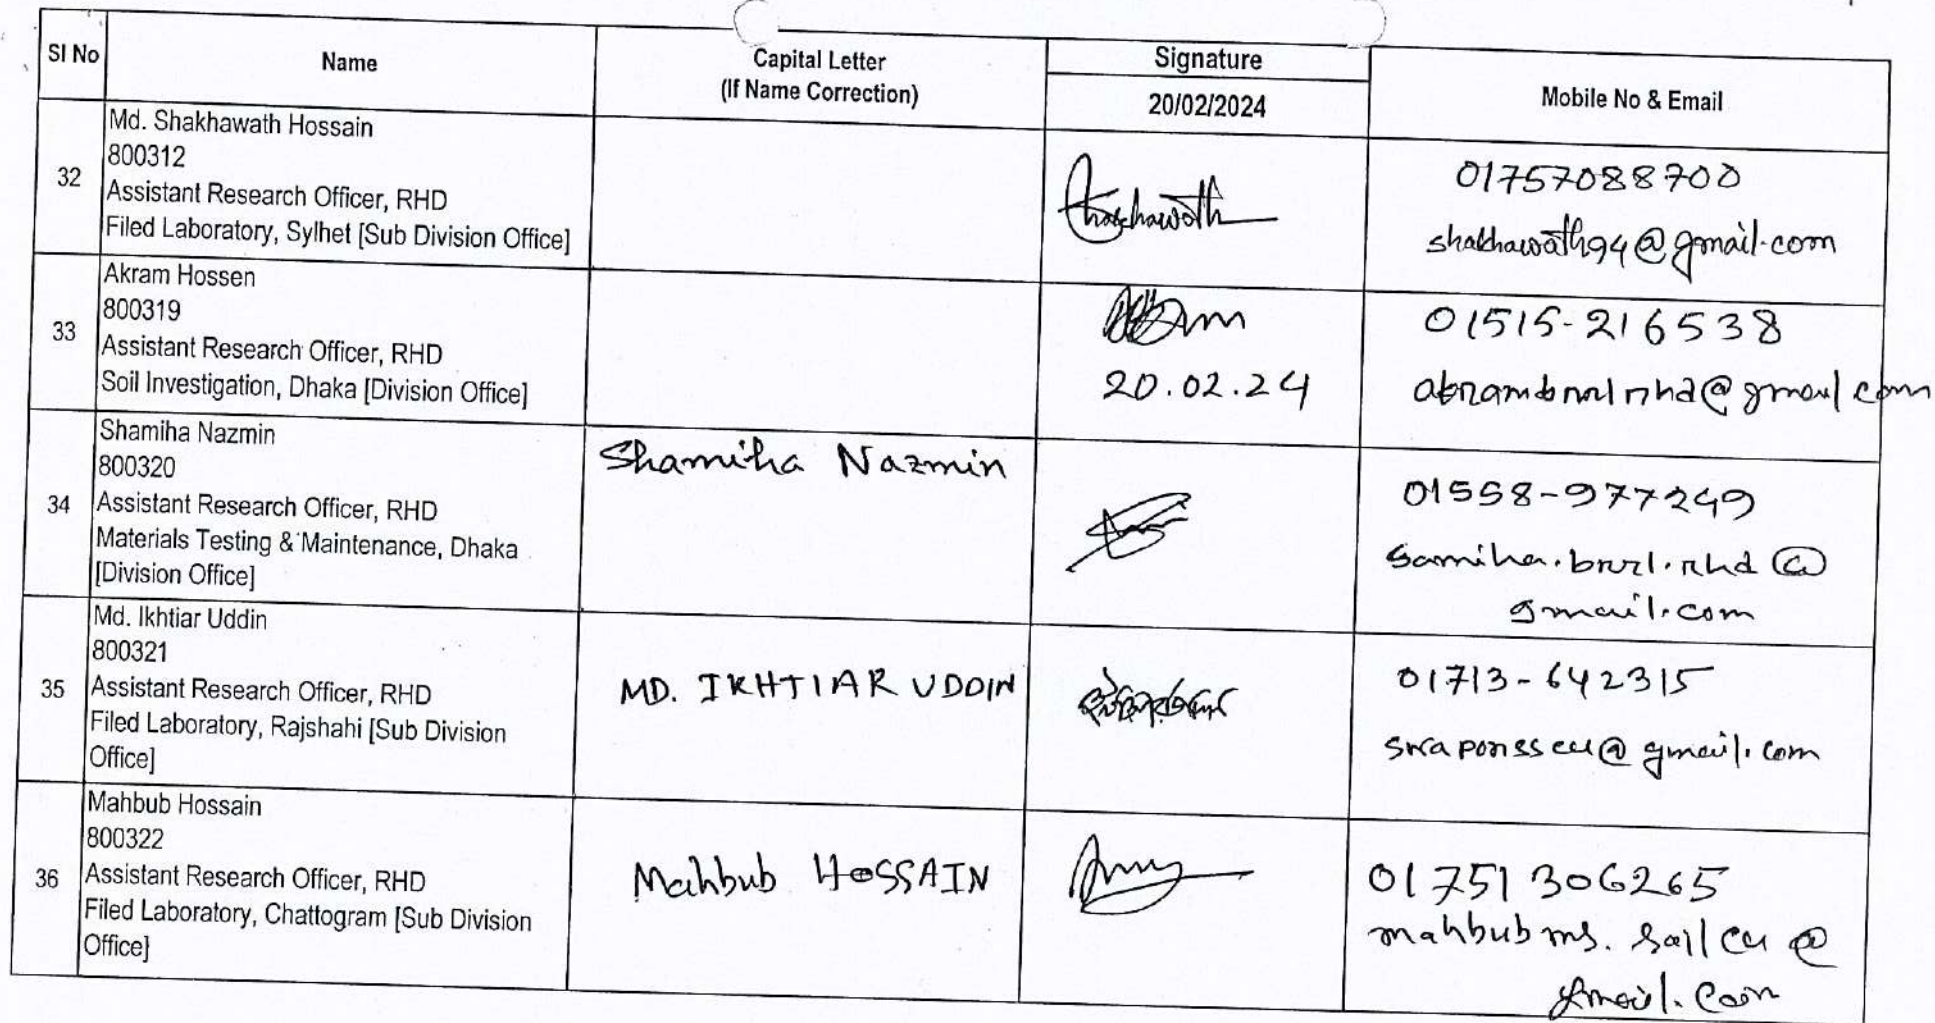 Sl No
Name
Capital Letter
(If Name Correction)
Signature
20/02/2024
Mobile No & Email
32
Md. Shakhawath Hossain
800312
Assistant Research Officer, RHD
Filed Laboratory, Sylhet [Sub Division Office]
Shakhawath
01757088700
shakhawath94@gmail.com
33
Akram Hossen
800319
Assistant Research Officer, RHD
Soil Investigation, Dhaka [Division Office]
20.02.24
01515-216538
akrambrrlrhd@gmail.com
34
Shamiha Nazmin
800320
Assistant Research Officer, RHD
Materials Testing & Maintenance, Dhaka
[Division Office]
Shamiha Nazmin
01558-977249
samiha.brrl.rhd@
gmail.com
35
Md. Ikhtiar Uddin
800321
Assistant Research Officer, RHD
Filed Laboratory, Rajshahi [Sub Division
Office]
MD. IKHTIAR UDDIN
01713-642315
swaponsscu@gmail.com
36
Mahbub Hossain
800322
Assistant Research Officer, RHD
Filed Laboratory, Chattogram [Sub Division
Office]
Mahbub HOSSAIN
01751306265
mahbubms.soilcu@
gmail.com